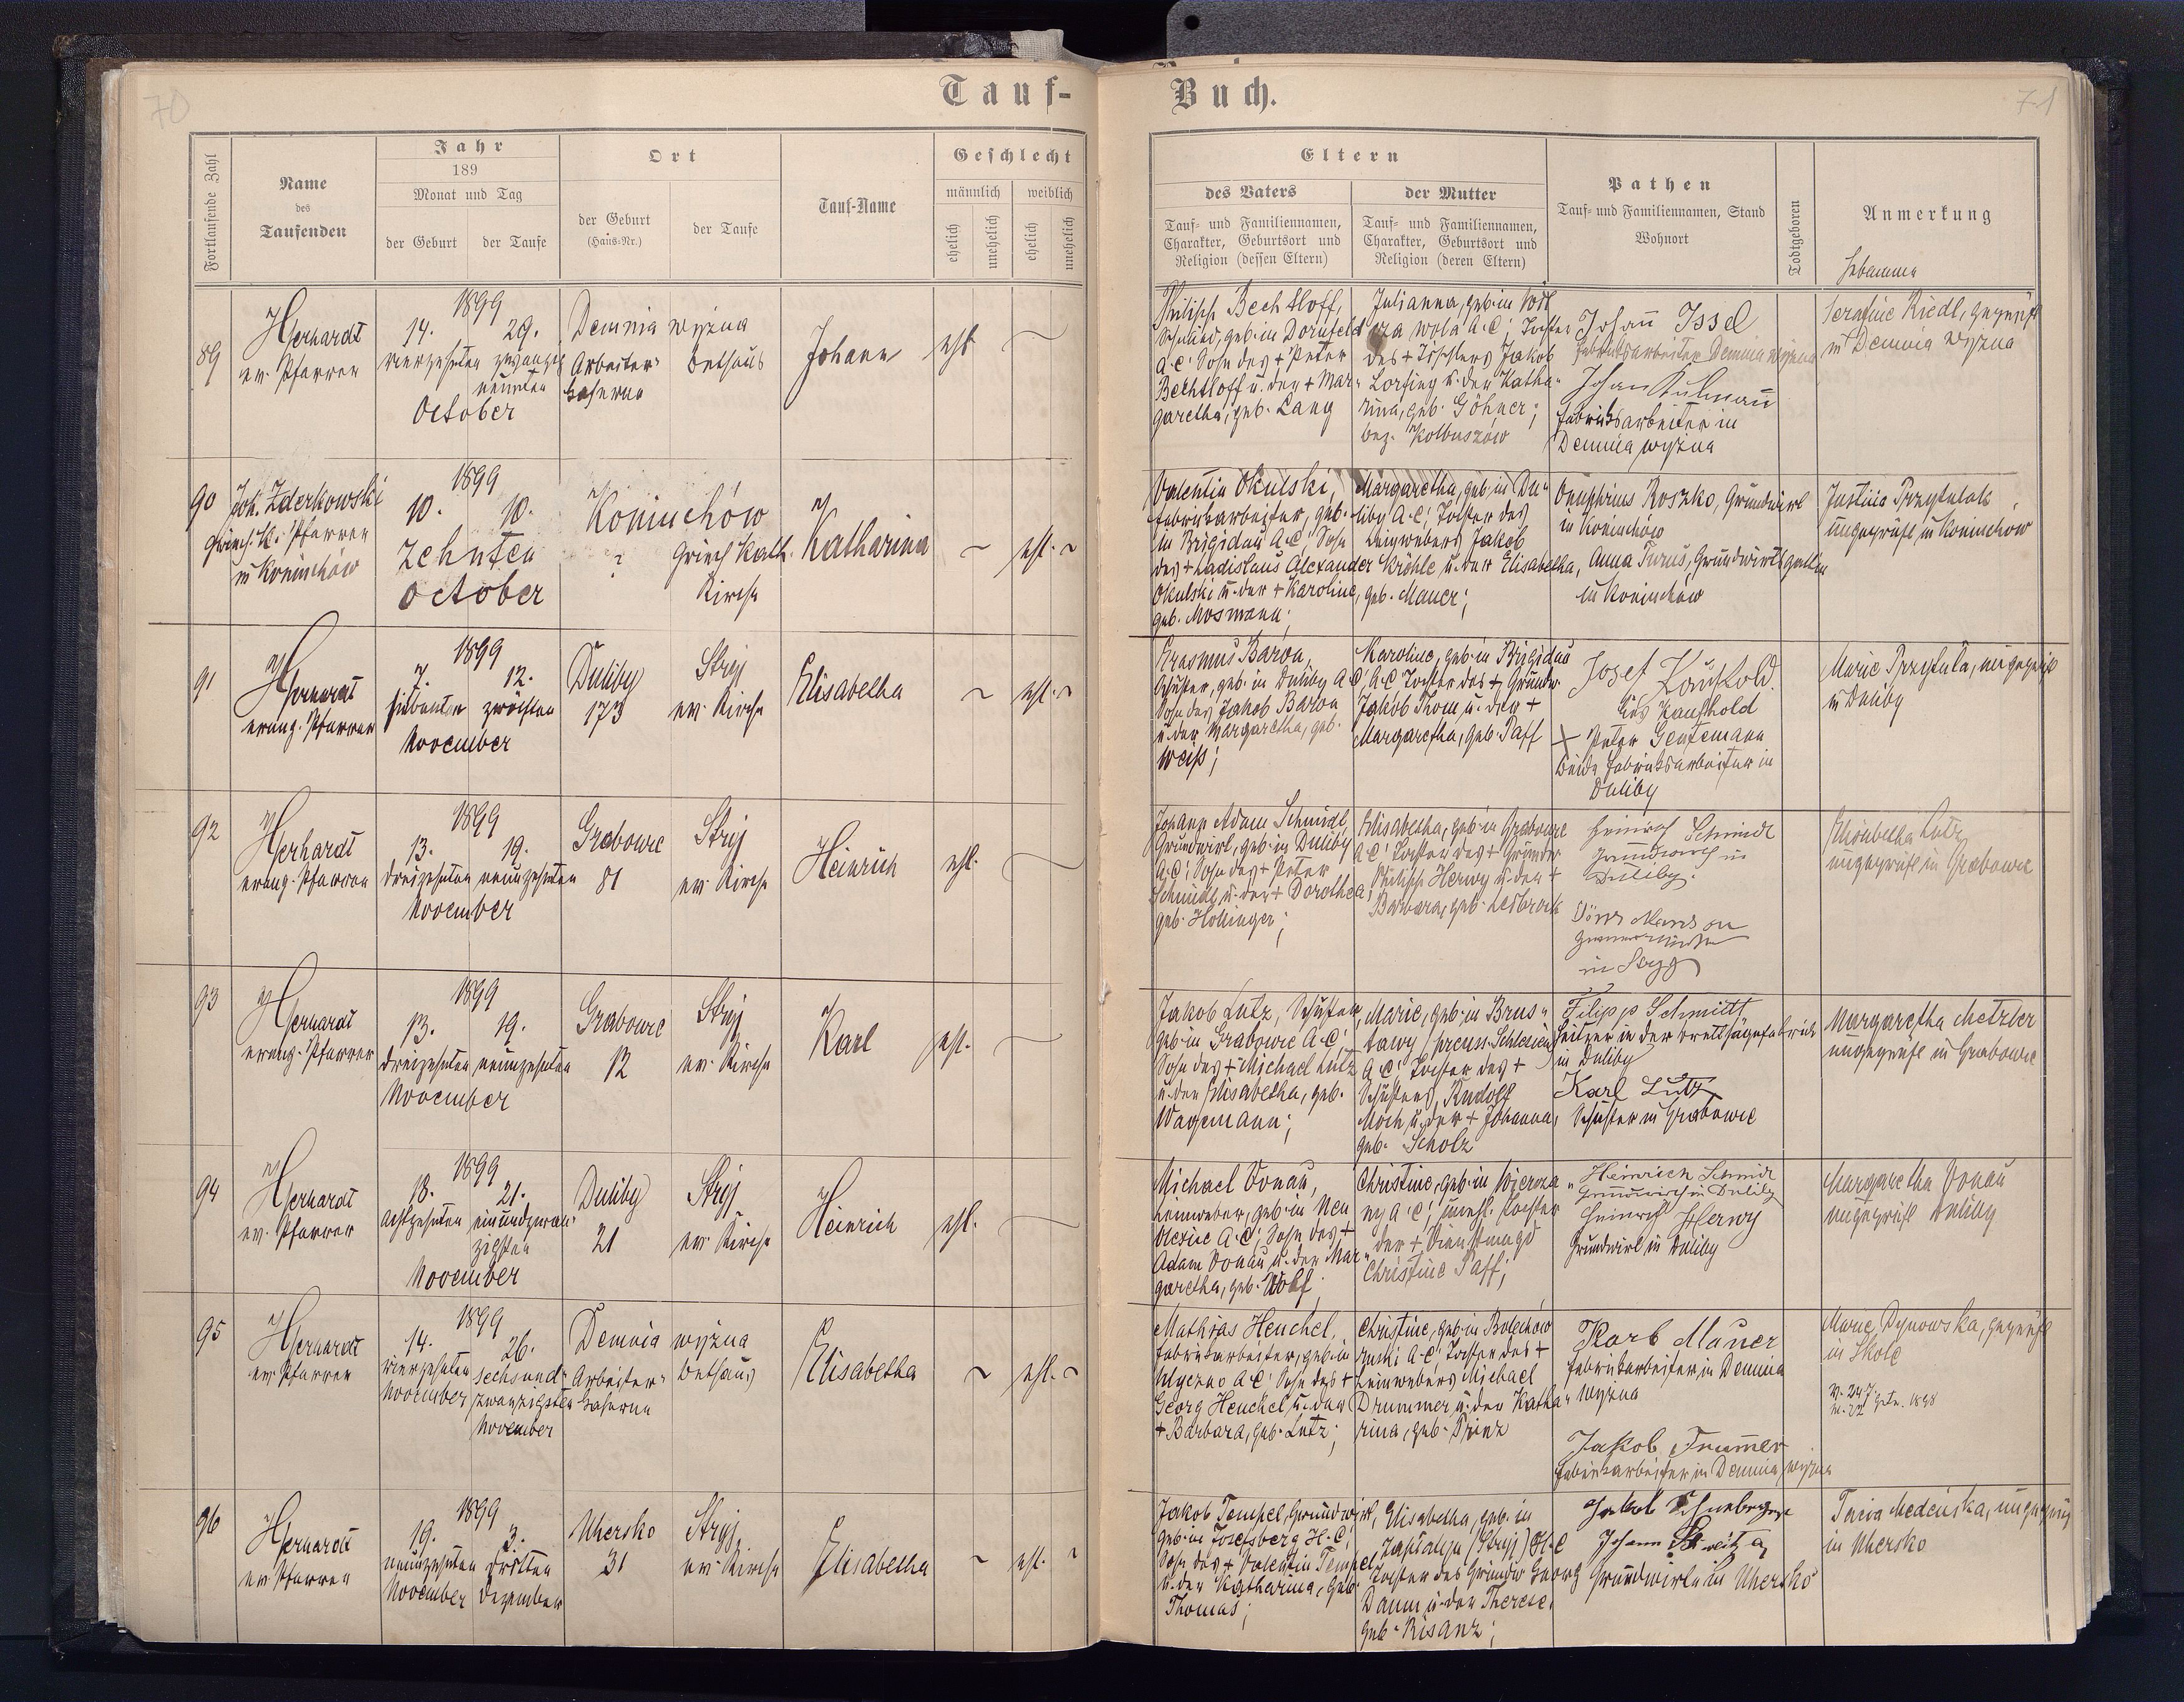 70
Tauf-
Fortlaufende Zahl
Name
des
Taufenden
Jahr
189
Monat und Tag
der Geburt
der Taufe
Ort
der Geburt
(Haus-Nr.)
der Taufe
Tauf-Name
Geschlecht
männlich
weiblich
ehelich
unehelich
ehelich
unehelich
89
Gerhardt
ev. Pfarrer
1899
14. 29.
vierzehnten zwanzig
neunten
October
Demnia wyżna
Arbeiter- Bethaus
kaserne
Johann
ehl.
90
Joh. Zderkowski
Griech. K. Pfarrer
in Koniuchów
1899
10. 10.
Zehnten
October
Koniuchów
? Griech Kath.
Kirche
Katharina
~ ehl. ~
91
Gerhardt
evang. Pfarrer
1899
7. 12.
siebenten zwölften
November
Duliby
173
Stryj
ev. Kirche
Elisabetha
~ ehl. ~
92
Gerhardt
evang. Pfarrer
1899
13. 19.
dreizehnten neunzehnten
November
Grabowce
81
Stryj
ev. Kirche
Heinrich
ehl.
93
Gerhardt
evang. Pfarrer
1899
13. 19.
dreizehnten neunzehnten
November
Grabowce
12
Stryj
ev. Kirche
Karl
ehl.
94
Gerhardt
ev. Pfarrer
1899
18. 21.
achtzehnten einundzwan-
zigsten
November
Duliby
21
Stryj
ev. Kirche
Heinrich
ehl.
95
Gerhardt
ev. Pfarrer
1899
14. 26.
vierzehnten sechsund-
November zwanzigsten
November
Demnia wyżna
Arbeiter- Bethaus
kaserne
Elisabetha
~ ehl. ~
96
Gerhardt
ev. Pfarrer
1899
19. 3.
neunzehnten dritten
November Dezember
Uhersko
31
Stryj
ev. Kirche
Elisabetha
~ ehl. ~
Buch.
71
Eltern
des Vaters
Tauf- und Familiennamen,
Charakter, Geburtsort und
Religion (dessen Eltern)
der Mutter
Tauf- und Familiennamen,
Charakter, Geburtsort und
Religion (deren Eltern)
Pathen
Tauf- und Familiennamen, Stand
Wohnort
Todtgeboren
Anmerkung
Hebamme
Philipp Bechtloff,
geb. in Dornfeld
A.C. Sohn des + Peter
Bechtloff u. der + Mar-
garetha, geb. Lang
Julianna, geb. in
wola A.C. Tochter
des + Tischlers Jakob
Lorfing u. der Katha-
rina, geb. Göhner;
bez. Kolbuszów
Johañ Issel
Fabriksarbeiter Demnia wyżna
Johan Kulmañ
Fabriksarbeiter in
Demnia wyżna
Serafine Riedl, geprüft
in Demnia wyżna
Valentin Okulski,
Fabriksarbeiter, geb.
in Brigidau A.C. Sohn
des + Ladislaus Alexander
Okulski u. der + Karoline,
geb. Mosmann;
Margaretha, geb. in Du-
liby A.C. Tochter des
Leinwebers Jakob
Kröhle u. der Elisabetha,
geb. Mauer;
Onuphrius Roszko, Grundwirt
in Koniuchów
Anna Turus, Grundwirtsgattin
in Koniuchów
Justina Przytulak
ungeprüft, in Koniuchów
Erasmus Baron,
Schuster, geb. in Duliby A.C.
Sohn des Jakob Baron
u. der Margaretha, geb.
Weiß;
Karoline, geb. in Brigidau
A.C. Tochter des + Grundw.
Jakob Thom u. der +
Margaretha, geb. Paff
Josef
Kaufhold
+ Peter Gentemann
beide Fabriksarbeiter in
Duliby
Marie Przytula, ungeprüft
in Duliby
Johann Adam Schmidt,
Grundwirt, geb. in Duliby
A.C. Sohn des + Peter
Schmidt u. der + Dorothea,
geb. Hollinger;
Elisabetha, geb. in Grabowce
A.C. Tochter des + Grundw.
Philipp Herwy u. der +
Barbara, geb. Lesbrock
Heinrich Schmidt
Grundwirth in
Duliby.
in Stryj
Elisabetha Lutz
ungeprüft in Grabowce
Jakob Lutz, Schuster,
geb. in Grabowce A.C.
Sohn des + Michael Lutz
u. der Elisabetha, geb.
Wagemann;
Marie, geb. in Brus-
tawy (preuss. Schlesien)
A.C. Tochter des +
Schusters Rudolf
Moch u. der + Johanna,
geb. Scholz
Filipp Schmitt
Heitzer in der Brettsägefabrick
in Duliby
Karl Lutz
Schuster in Grabowce
Margaretha Metzler
ungeprüft in Grabowce
Michael Donau,
Leinweber, geb. in Neu
Oleksice A.C. Sohn des +
Adam Donau u. der Mar-
garetha, geb. Wolf;
Christine, geb. in Wiercza
ny A.C. unehl. Tochter
der + Dienstmagd
Christine Paff;
Heinrich Schmidt
Grundwirth in Duliby
Heinrich Herwy
Grundwirt in Duliby
Margaretha Donau
ungeprüft Duliby
Mathias Heuchel,
Fabriksarbeiter, geb. in
A.C. Sohn des +
Georg Heuchel u. der
+ Barbara, geb. Lutz;
Christine, geb. in Bolechów
ruski A.C. Tochter des +
Leinwebers Michael
Drummer u. der Katha-
rina, geb. Prinz
Karb Mauer
Fabriksarbeiter in Demnia
wyżna
Jakob Trumer
Fabriksarbeiter in Demnia wyżna
Marie Dynowska, geprüft
in Skole
1898
Jakob Tempel, Grundwirt,
geb. in Josefsberg H.C.
Sohn des + Valentin Tempel
u. der Katharina, geb.
Thomas;
Elisabetha, geb. in
Zaplatyn (Stryj) H.C
Tochter des Grundw. Georg
Damm u. der Therese,
geb. Risanz;
Jakob
Johann
Grundwirte in Uhersko
Medeńska, ungeprüft
in Uhersko